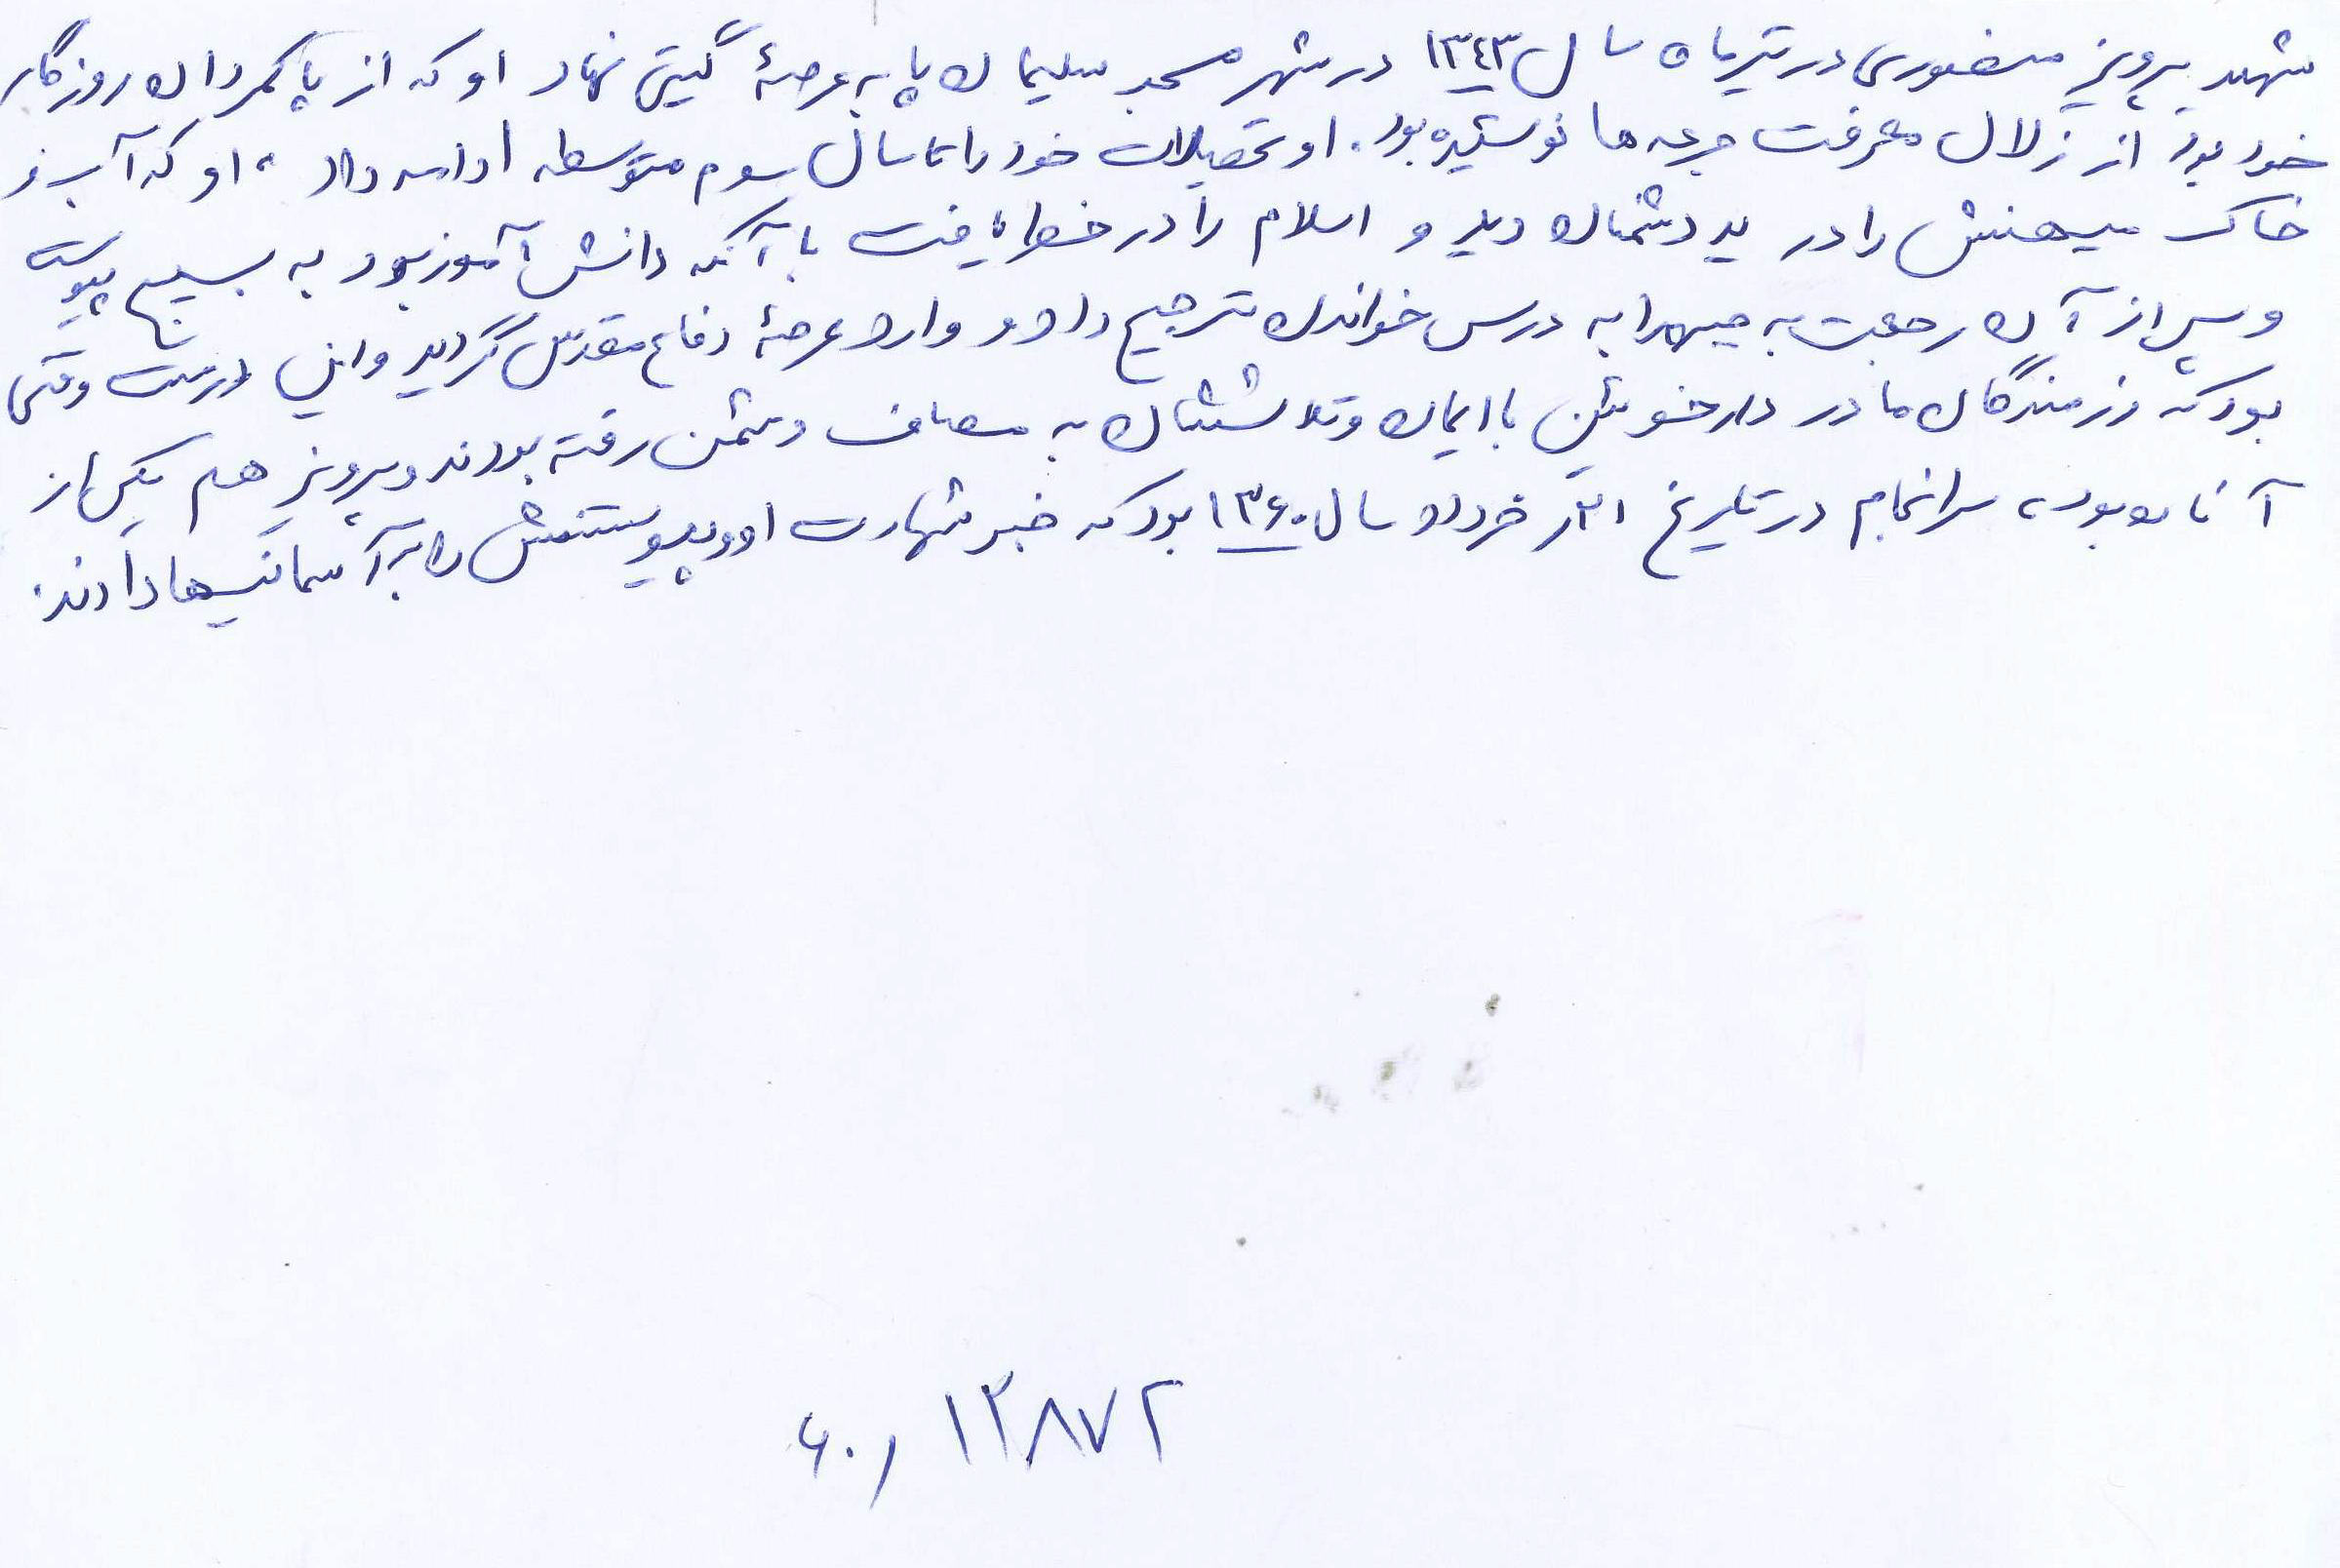 شهید پرویز منصوری در تیرماه سال ۱۳۴۳ در شهر مسجد سلیمان پا به عرصهٔ گیتی نهاد او که از پاکمردان روزگار
خود بود از زلال معرفت جرعه ها نوشیده بود. او تحصیلات خود را تا سال سوم متوسطه ادامه داد، او که آب و
خاک میهنش را در ید دشمنان دید و اسلام را در خطر یافت با آنکه دانش آموز بود به بسیج پیوست
و پس از آن رجعت به جبهه را به درس خواندن ترجیح داد و وارد عرصهٔ دفاع مقدس گردید و این درست وقتی
بود که رزمندگان ما در دارخوین با ایمان و تلاششان به مصاف دشمن رفته بودند و پرویز هم یکی از
آنان بود، سرانجام در تاریخ ۲۱ خرداد سال ۱۳۶۰ بود که خبر شهادت او و پیوستنش را به آسمانیها دادند.
۱۳۸۷۲ ر۶۰